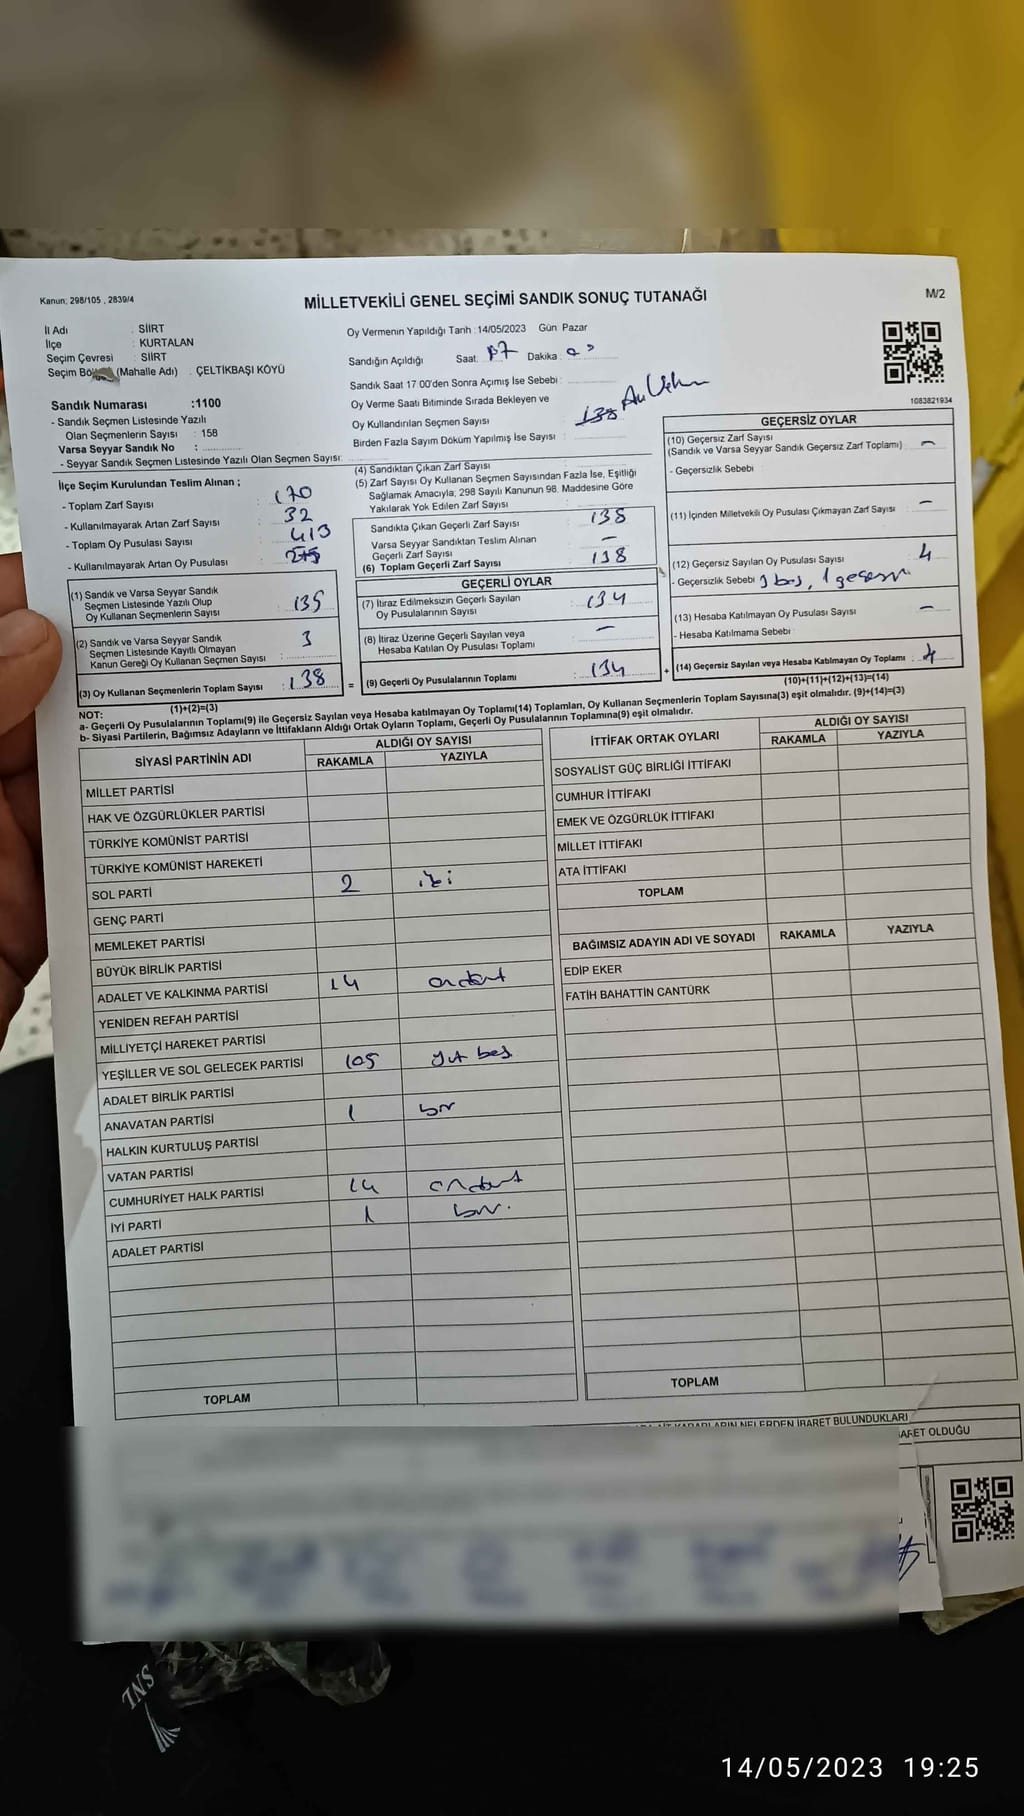 Kanun: 298/105 , 2839/4
MİLLETVEKİLİ GENEL SEÇİMİ SANDIK SONUÇ TUTANAĞI
M/2
İl Adı : SİİRT
İlçe : KURTALAN
Seçim Çevresi : SİİRT
Seçim Bö (Mahalle Adı) : ÇELTİKBAŞI KÖYÜ
Sandık Numarası :1100
- Sandık Seçmen Listesinde Yazılı
Olan Seçmenlerin Sayısı : 158
Varsa Seyyar Sandık No :
- Seyyar Sandık Seçmen Listesinde Yazılı Olan Seçmen Sayısı:
Oy Vermenin Yapıldığı Tarih :14/05/2023 Gün Pazar
Sandığın Açıldığı Saat: 17 Dakika:
Sandık Saat 17 00'den Sonra Açımış İse Sebebi :
Oy Verme Saati Bitiminde Sırada Bekleyen ve
Oy Kullandırılan Seçmen Sayısı : 138
Birden Fazla Sayım Döküm Yapılmış İse Sayısı :
1083821934
İlçe Seçim Kurulundan Teslim Alınan ;
- Toplam Zarf Sayısı : 170
- Kullanılmayarak Artan Zarf Sayısı : 32
- Toplam Oy Pusulası Sayısı : 413
- Kullanılmayarak Artan Oy Pusulası : 275
(1) Sandık ve Varsa Seyyar Sandık
Seçmen Listesinde Yazılı Olup
Oy Kullanan Seçmenlerin Sayısı : 135
(2) Sandık ve Varsa Seyyar Sandık
Seçmen Listesinde Kayıtlı Olmayan
Kanun Gereği Oy Kullanan Seçmen Sayısı : 3
(3) Oy Kullanan Seçmenlerin Toplam Sayısı : 138
(1)+(2)=(3)
(4) Sandıktan Çıkan Zarf Sayısı :
(5) Zarf Sayısı Oy Kullanan Seçmen Sayısından Fazla İse, Eşitliği
Sağlamak Amacıyla; 298 Sayılı Kanunun 98. Maddesine Göre
Yakılarak Yok Edilen Zarf Sayısı :
Sandıkta Çıkan Geçerli Zarf Sayısı : 138
Varsa Seyyar Sandıktan Teslim Alınan
Geçerli Zarf Sayısı : —
(6) Toplam Geçerli Zarf Sayısı : 138
GEÇERLİ OYLAR
(7) İtiraz Edilmeksizin Geçerli Sayılan
Oy Pusulalarının Sayısı : 134
(8) İtiraz Üzerine Geçerli Sayılan veya
Hesaba Katılan Oy Pusulası Toplamı : —
= (9) Geçerli Oy Pusulalarının Toplamı : 134 +
GEÇERSİZ OYLAR
(10) Geçersiz Zarf Sayısı
(Sandık ve Varsa Seyyar Sandık Geçersiz Zarf Toplamı) : —
- Geçersizlik Sebebi :
(11) İçinden Milletvekili Oy Pusulası Çıkmayan Zarf Sayısı : —
(12) Geçersiz Sayılan Oy Pusulası Sayısı : 4
- Geçersizlik Sebebi : 3 boş, 1 geçersiz
(13) Hesaba Katılmayan Oy Pusulası Sayısı : —
- Hesaba Katılmama Sebebi :
(14) Geçersiz Sayılan veya Hesaba Katılmayan Oy Toplamı : 4
(10)+(11)+(12)+(13)=(14)
NOT:
a- Geçerli Oy Pusulalarının Toplamı(9) ile Geçersiz Sayılan veya Hesaba katılmayan Oy Toplamı(14) Toplamları, Oy Kullanan Seçmenlerin Toplam Sayısına(3) eşit olmalıdır. (9)+(14)=(3)
b- Siyasi Partilerin, Bağımsız Adayların ve İttifakların Aldığı Ortak Oyların Toplamı, Geçerli Oy Pusulalarının Toplamına(9) eşit olmalıdır.
SİYASİ PARTİNİN ADI ALDIĞI OY SAYISI
RAKAMLA YAZIYLA
MİLLET PARTİSİ
HAK VE ÖZGÜRLÜKLER PARTİSİ
TÜRKİYE KOMÜNİST PARTİSİ
TÜRKİYE KOMÜNİST HAREKETİ
SOL PARTİ 2 iki
GENÇ PARTİ
MEMLEKET PARTİSİ
BÜYÜK BİRLİK PARTİSİ
ADALET VE KALKINMA PARTİSİ 14 ondört
YENİDEN REFAH PARTİSİ
MİLLİYETÇİ HAREKET PARTİSİ
YEŞİLLER VE SOL GELECEK PARTİSİ 105 yüz beş
ADALET BİRLİK PARTİSİ
ANAVATAN PARTİSİ 1 bir
HALKIN KURTULUŞ PARTİSİ
VATAN PARTİSİ
CUMHURİYET HALK PARTİSİ 14 ondört
İYİ PARTİ 1 bir.
ADALET PARTİSİ
TOPLAM
İTTİFAK ORTAK OYLARI ALDIĞI OY SAYISI
RAKAMLA YAZIYLA
SOSYALİST GÜÇ BİRLİĞİ İTTİFAKI
CUMHUR İTTİFAKI
EMEK VE ÖZGÜRLÜK İTTİFAKI
MİLLET İTTİFAKI
ATA İTTİFAKI
TOPLAM
BAĞIMSIZ ADAYIN ADI VE SOYADI RAKAMLA YAZIYLA
EDİP EKER
FATİH BAHATTİN CANTÜRK
TOPLAM
KARARLARIN NELERDEN İBARET BULUNDUKLARI
ARET OLDUĞU
SNL
14/05/2023 19:25